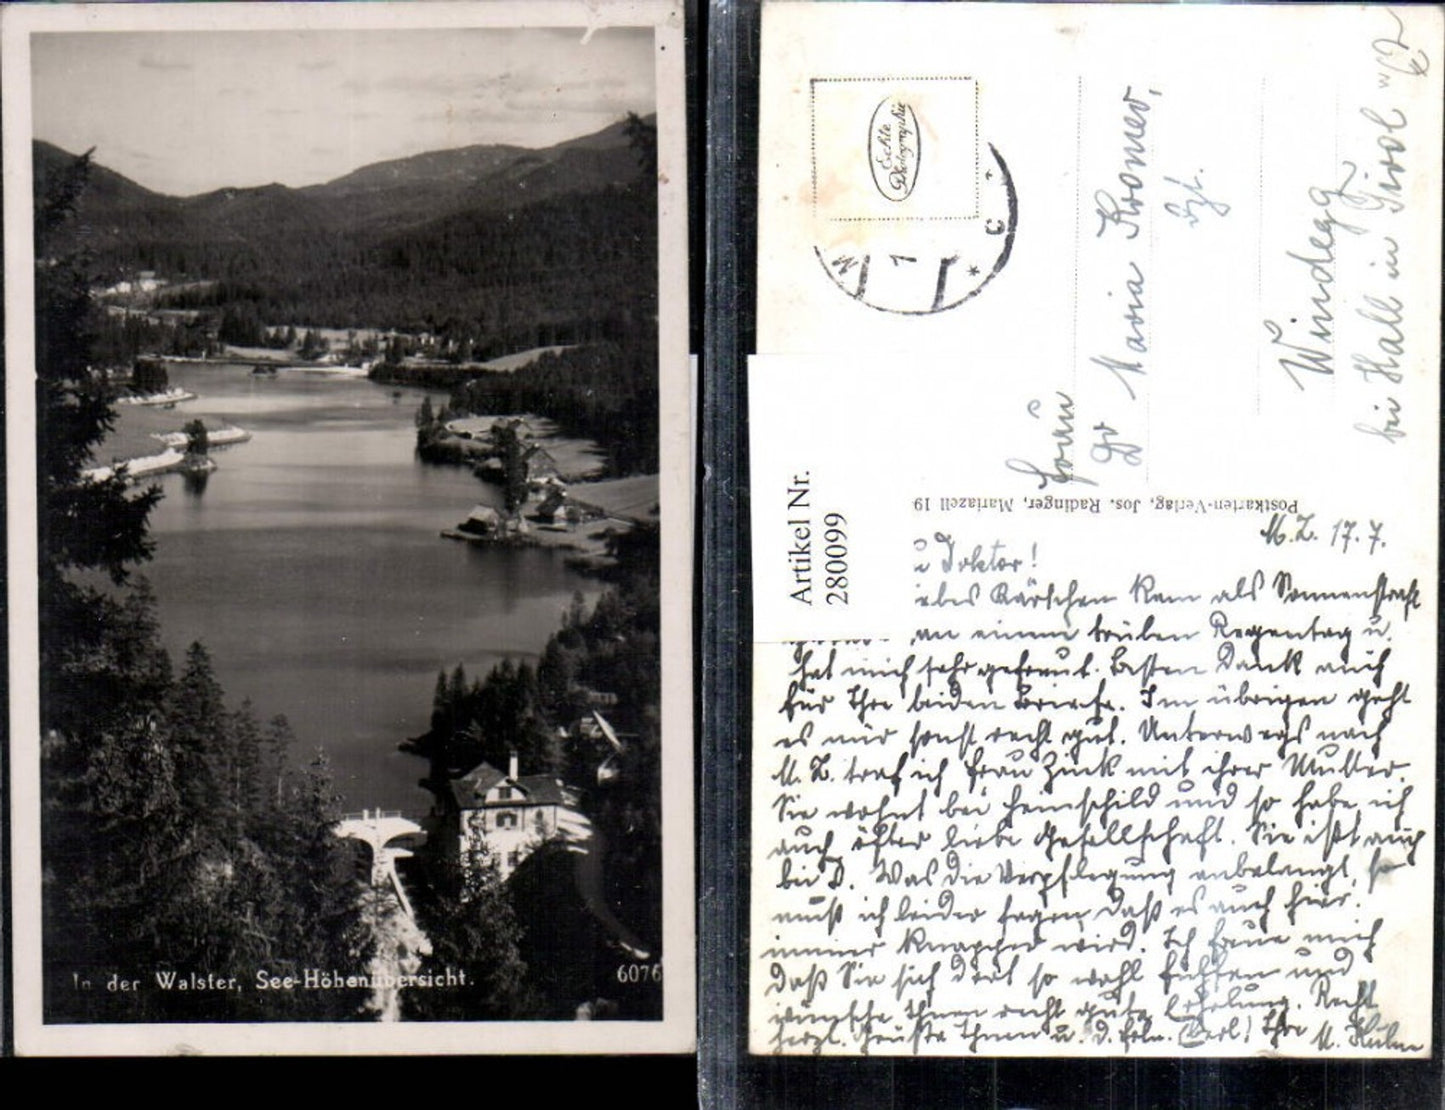 In der Walster, See-Höhenübersicht.
6076
Echte
Photographie
Frau
Dr Maria Kromer,
Windegg
bei Hall in Tirol
Artikel Nr.
280099
Postkarten-Verlag, Jos. Radinger, Mariazell 19
M. Z. 17. 7.
Doktor!
Kärtchen kam als Sonnenstrahl
an einem trüben Regentag u.
hat mich sehr gefreut. Besten Dank auch
für Ihre beiden Briefe. Im übrigen geht
es mir sonst recht gut. Unterwegs nach
M. Z. traf ich Frau Zink mit ihrer Mutter.
Sie wohnt bei Hemschild und so habe ich
auch öfter liebe Gesellschaft. Sie ist auch
bei D. Was die Verpflegung anbelangt, so
muß ich leider sagen, daß es auch hier
immer knapper wird. Ich freue mich
daß Sie sich dort so wohl fühlen und
wünsche Ihnen recht gute Erholung. Recht
herzl. Grüße Ihnen u. d. Frln. Ihre M.